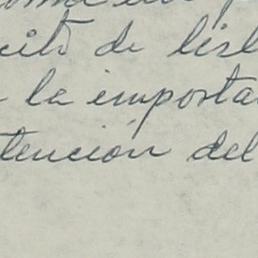 cito de lisb
la importa
tención del